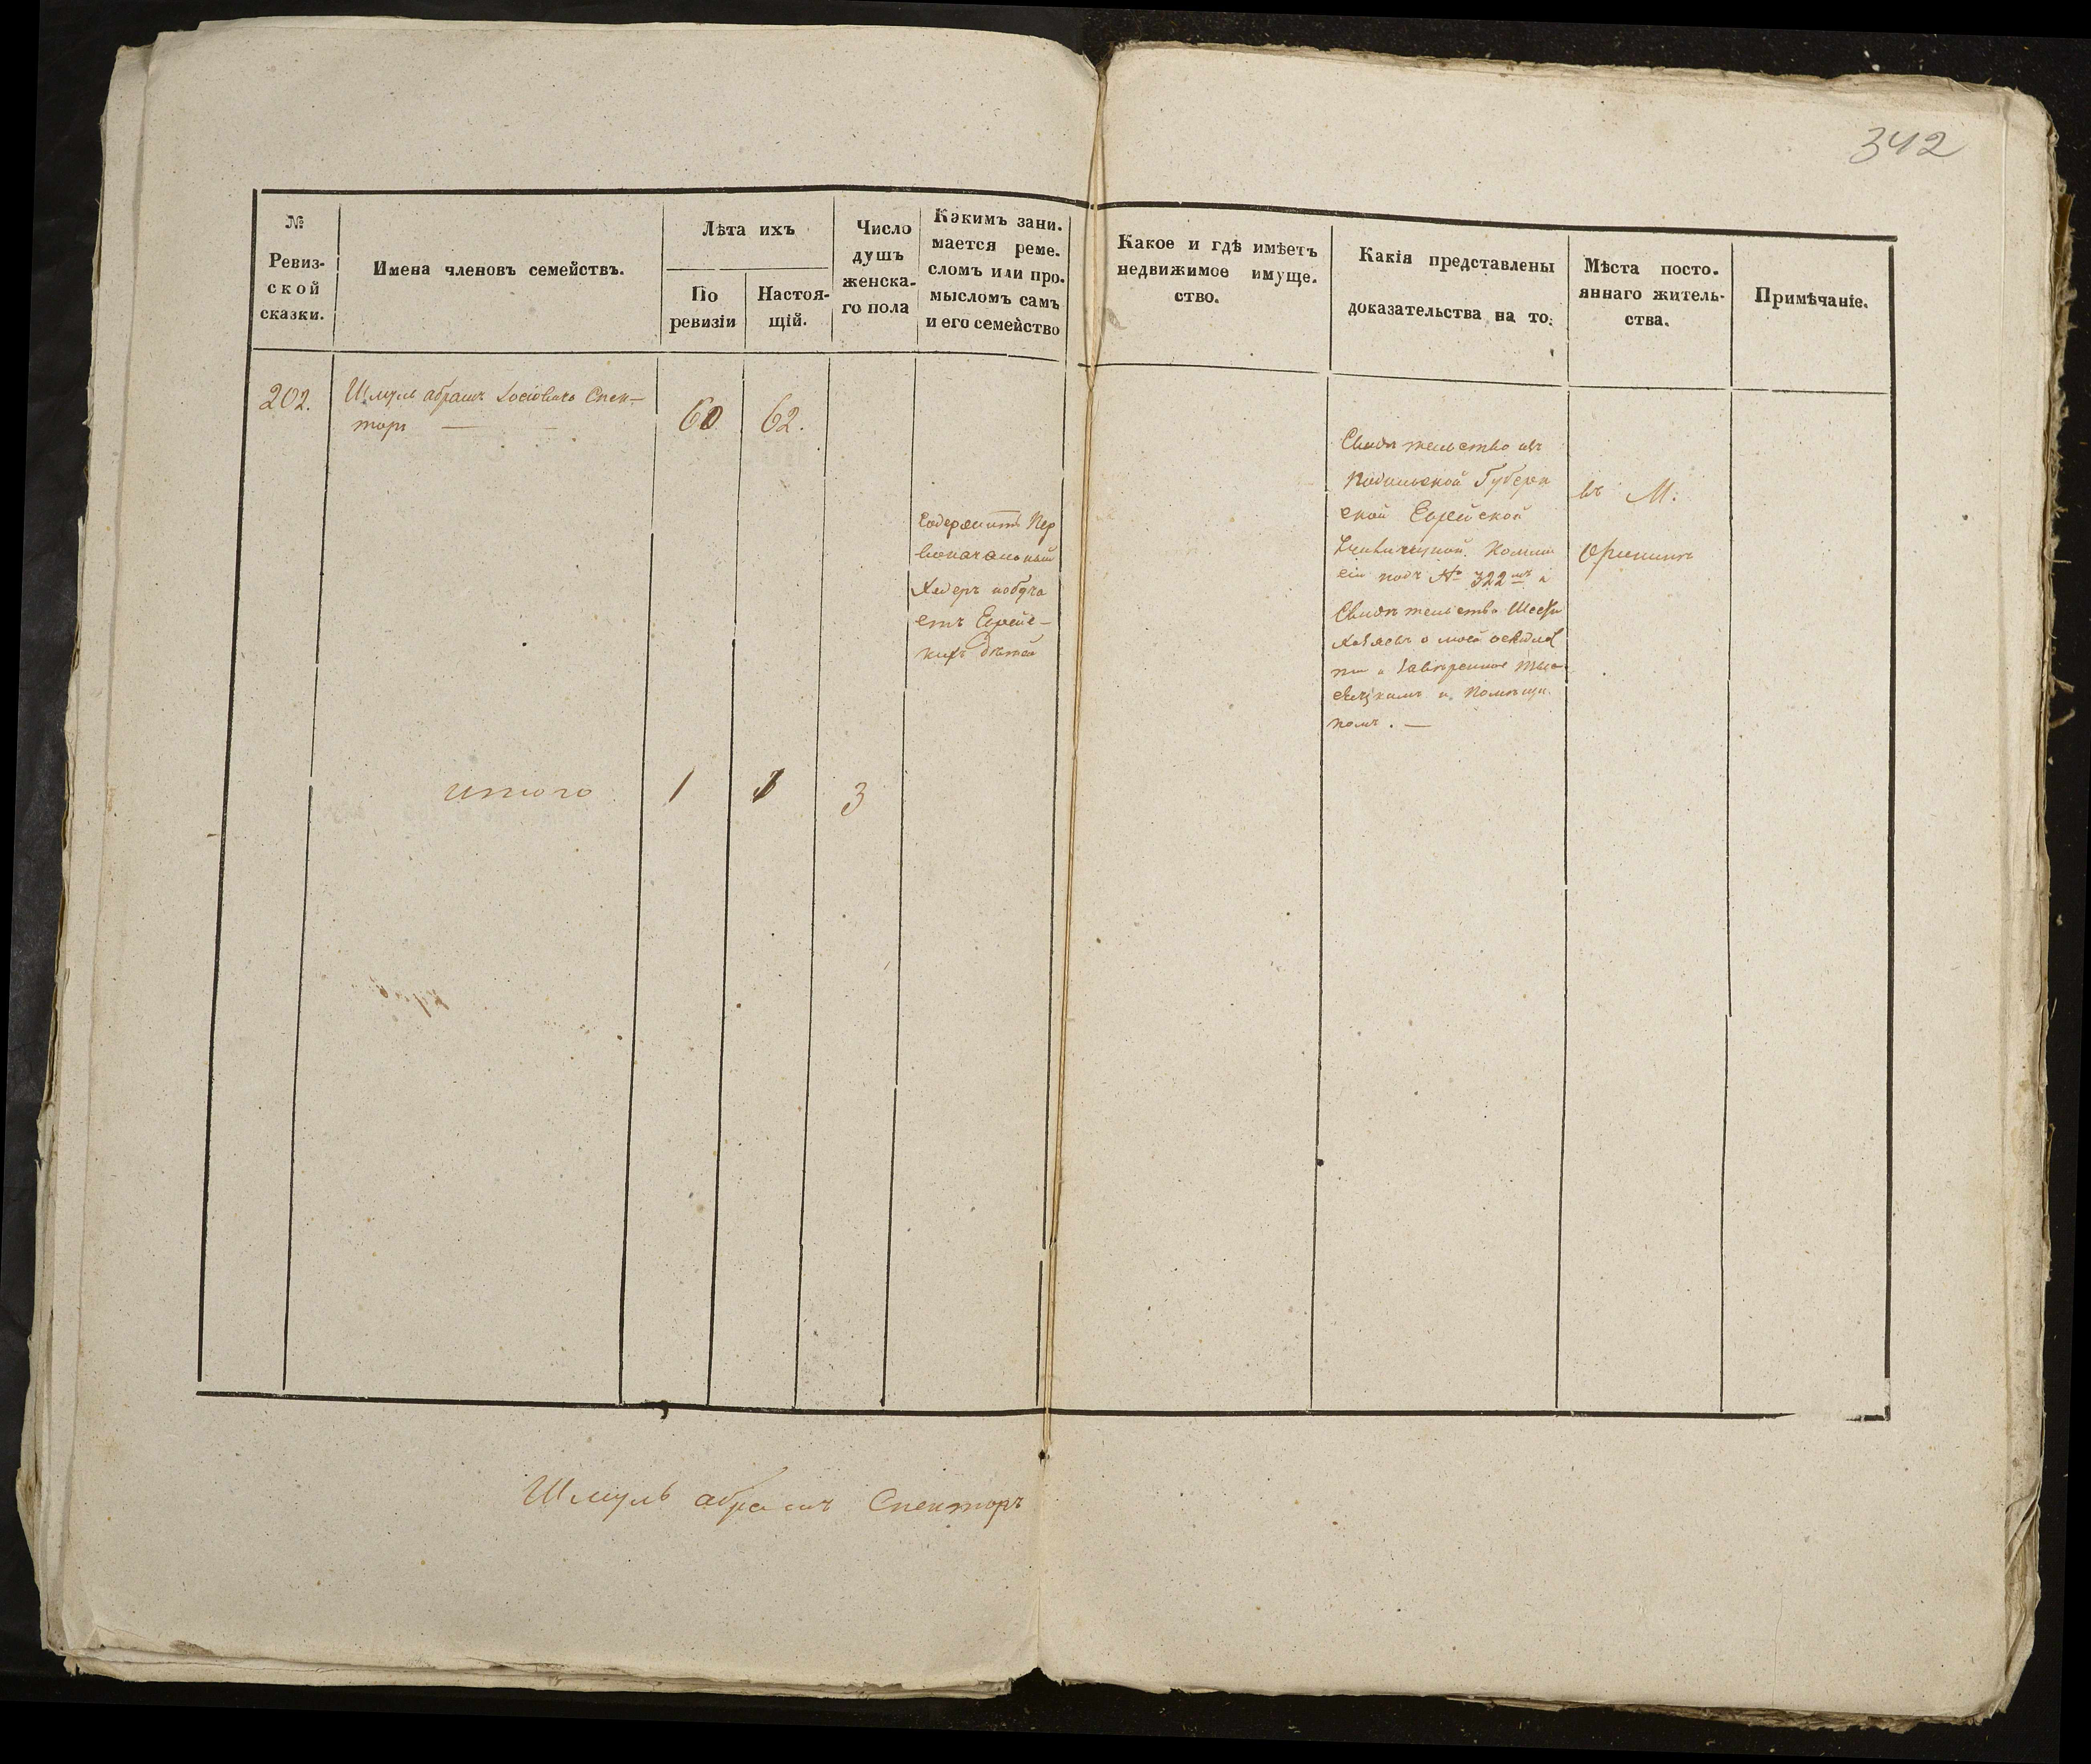 342
№
Ревиз-
ской
сказки.
Имена членовъ семействъ.
Лѣта ихъ
По
ревизіи
Настоя-
щій.
Число
душъ
женска-
го пола
Какимъ зани-
мается реме-
сломъ или про-
мысломъ самъ
и его семейство
Какое и гдѣ имѣетъ
недвижимое имуще-
ство.
Какія представлены
доказательства на то.
Мѣста посто-
яннаго житель-
ства.
Примѣчаніе.
202.
Шмуль абрамъ Іосіовичъ Спек-
торъ
60
62.
Содержитъ Пер
воначальный
Хедеръ и обуча
етъ Еврейс-
кихъ дѣтей
Свидѣтельство изъ
Подильской Губерн
ской Еврейской
Комми
сіи подъ № 322мъ и
Свидѣтельство Шести
хозяевъ о моей осѣдлос
ти и завѣренное
и Помѣщи
комъ. —
въ М.
Фрининѣ
итого
1
1
3
Шмуль абрамъ Спекторъ